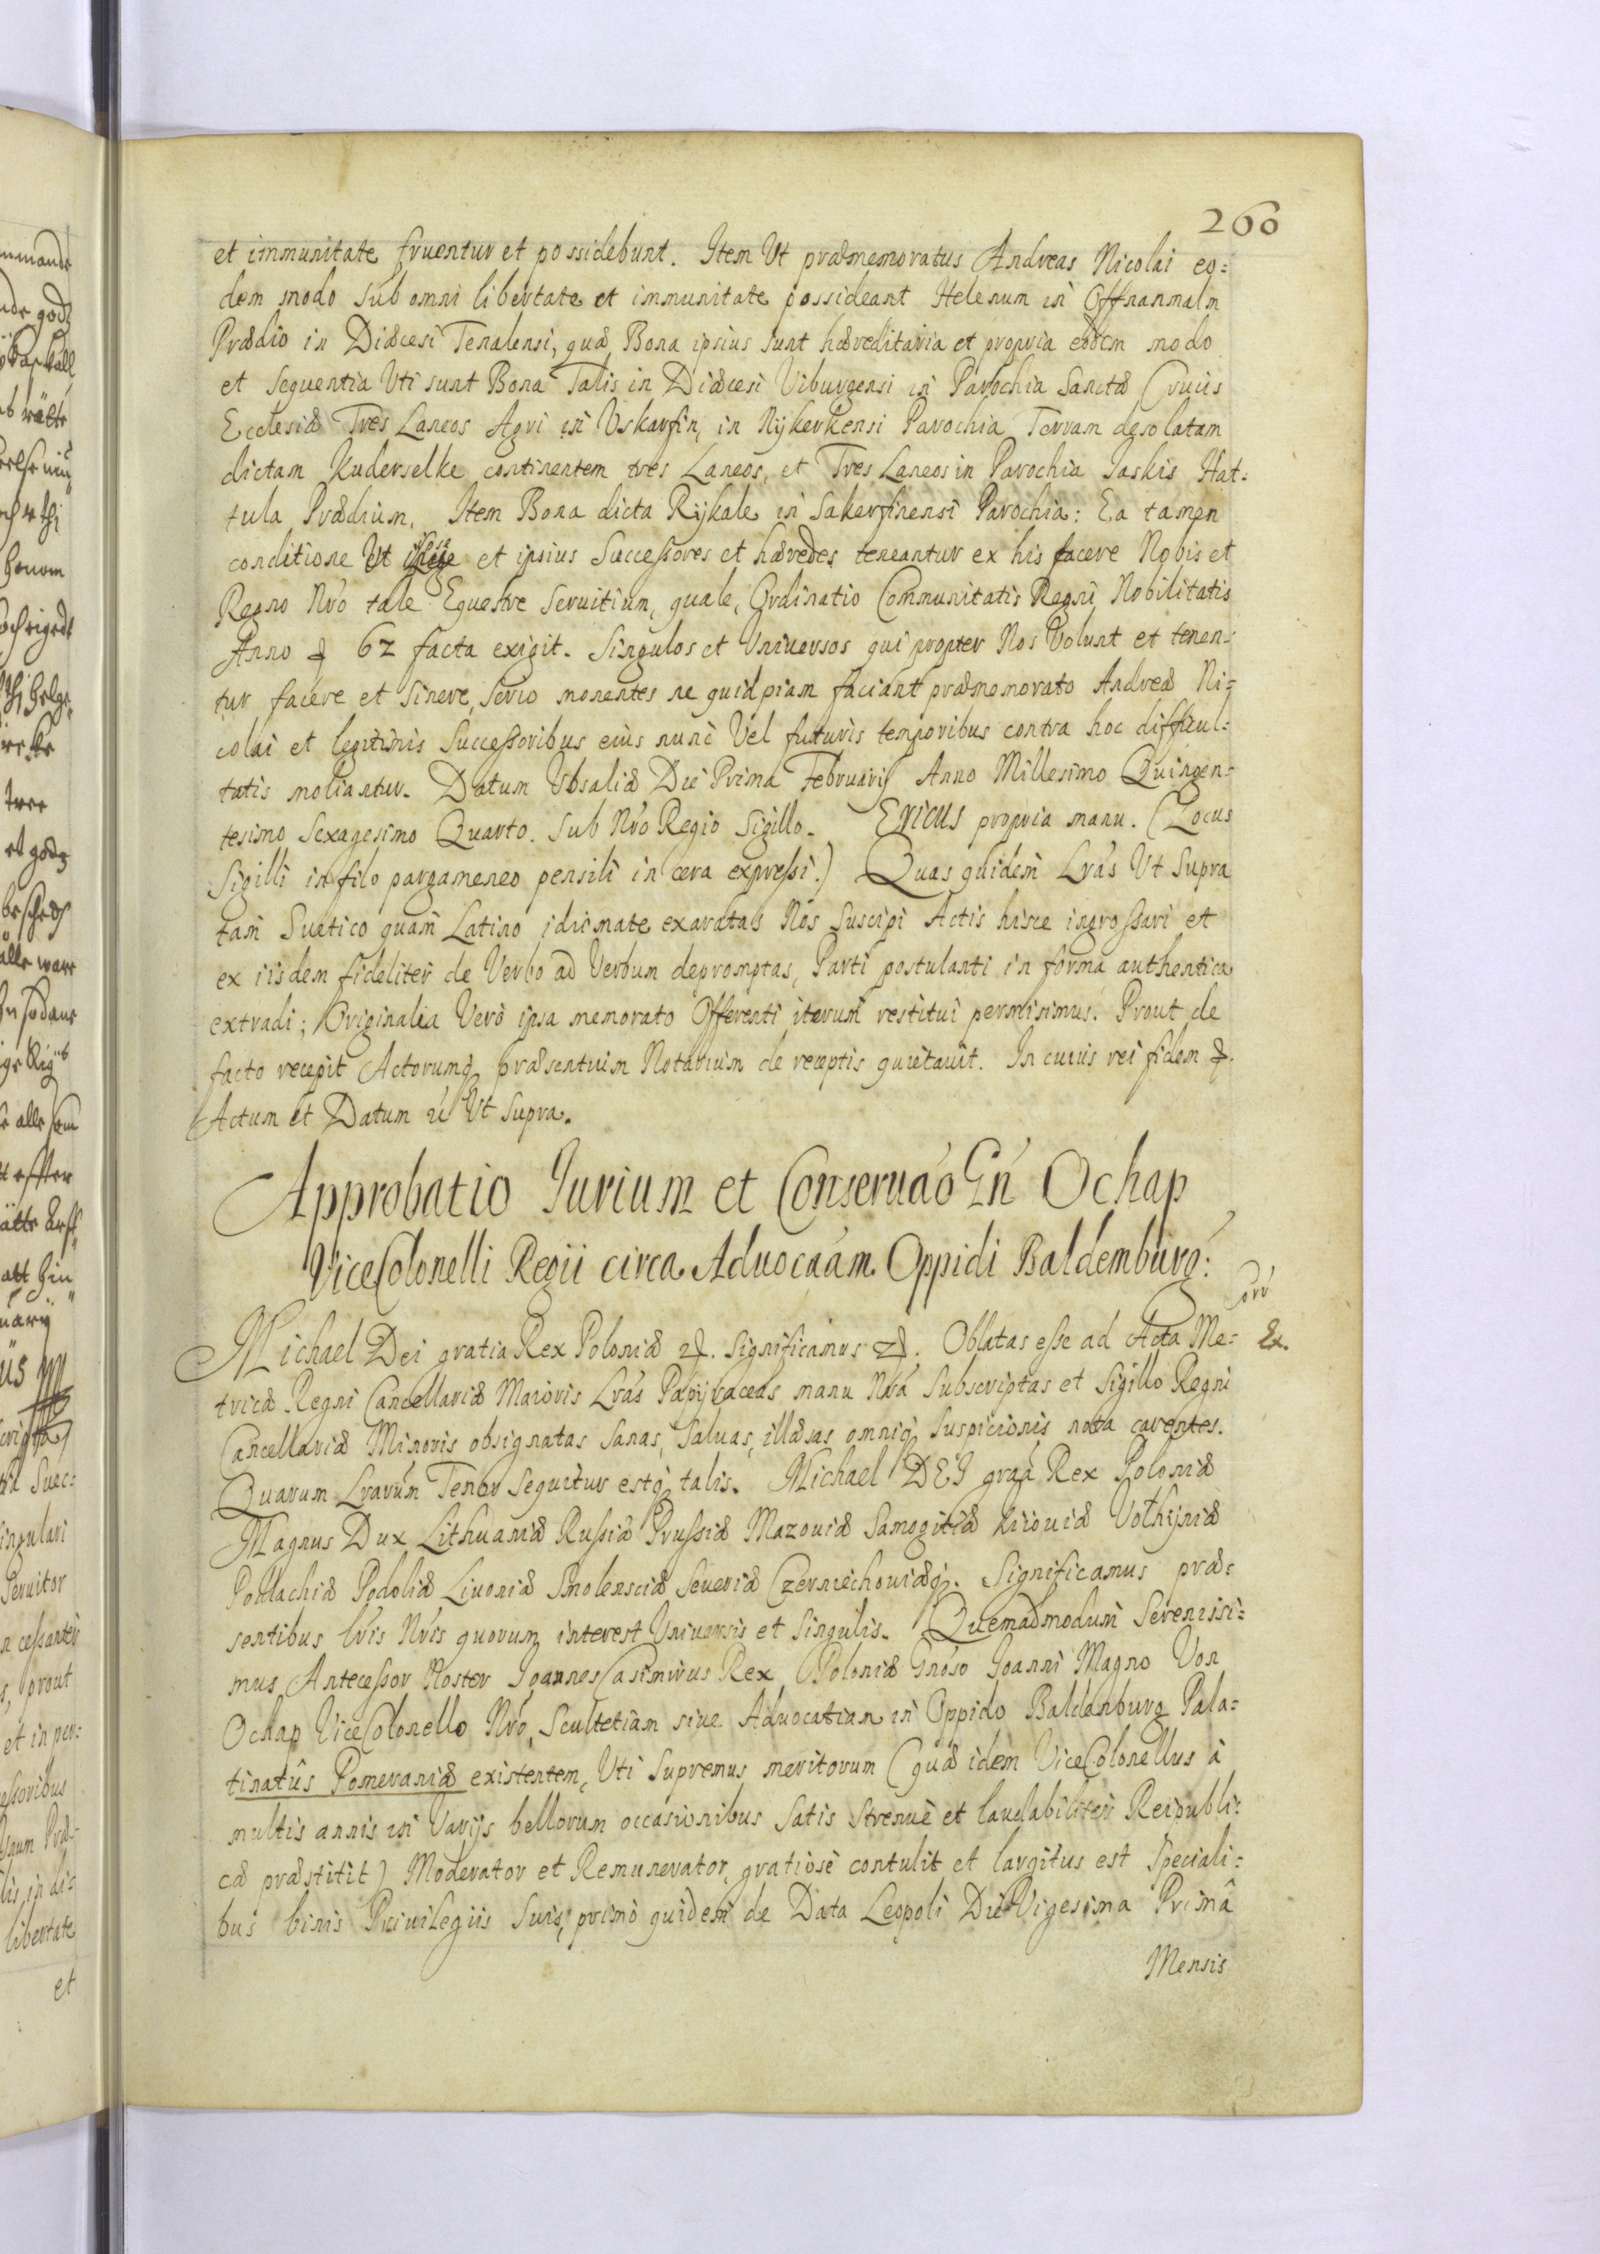 260
et immunitate fruentur et possidebunt. Item Ut præmemoratus Andreas Nicolai eo=
dem modo sub omni libertate et immunitate possideant Helenum in Offnanmalm
Prædio in Diæcesi Tenalensi, quæ Bona ipsius sunt hæreditaria et propria eodem modo
et sequentia Uti sunt Bona Talis in Diæcesi Viburgensi in Parochia Sanctæ Crucis
Ecclesiæ Tres Laneos Agri in Vskarfin, in Nijkerkensi Parochia Terram desolatam
dictam Kuderselke continentem tres Laneos, et Tres Laneos in Parochia Jaskis Hat=
tula Prædium, Item Bona dicta Rijkale in Sakerfinensi Parochia: Ea tamen
conditione Ut ipse et ipsius Successores et hæredes teneantur ex his facere Nobis et
Regno Nro tale Equestre Seruitium, quale, Ordinatio Communitatis Regni Nobilitatis
Anno & 62 facta exigit. Singulos et Vniuersos qui propter Nos Volunt et tenen=
tur facere et Sinere, serio monentes ne quidpiam faciant præmemorato Andreæ Ni=
colai et legitimis Successoribus eius nunc Vel futuris temporibus contra hoc difficul=
tatis moliantur. Datum Vbsaliæ Die Prima Februarij Anno Millesimo Quingen=
tesimo Sexagesimo Quarto. Sub Nro Regio Sigillo. Ericus propria manu. (Locus
Sigilli in filo pargameneo pensili in cera expressi.) Quas quidem Lras Ut Supra
tam Suetico quam Latino idiomate exaratas Nos Suscipi Actis hisce ingrossari et
ex iisdem fideliter de Verbo ad Verbum depromptas, Parti postulanti in forma authentica
extradi; Originalia Verò ipsa memorato Offerenti iterum restitui permisimus. Prout de
facto recepit Actorumq præsentium Notarium de receptis quietauit. In cuius rei fidem &.
Actum et Datum ù Ut Supra.
Approbatio Iurium et Conseruao Gn Ochap
ViceColonelli Regii circa Aduocaam Oppidi Baldemburg:
Corr
Michael Dei gratia Rex Poloniæ &. Significamus &. Oblatas esse ad Acta Me= Ex.
tricæ Regni Cancellariæ Maioris Lras Papijraceas manu Nra Subscriptas et Sigillo Regni
Cancellariæ Minoris obsignatas Sanas, Saluas, illæsas omniq Suspicionis nota carentes.
Quarum Lrarum Tenor Sequitur estq talis. Michael DEI graa Rex Poloniæ
Magnus Dux Lithuaniæ Russiæ Prussiæ Mazouiæ Samogitiæ Kiiouiæ Volhijniæ
Podlachiæ Podoliæ Liuoniæ Smolensciæ Seueriæ Czerniechouiæq. Significamus præ=
sentibus lris Nris quorum interest Vniuersis et Singulis. Quemadmodum Serenissi=
mus Antecessor Noster Joannes Casimirus Rex Poloniæ Gnoso Joanni Magno Von
Ochap ViceColonello Nro, Scultetiam siue Aduocatiam in Oppido Baldenburg Pala=
tinatûs Pomeraniæ existentem, Uti Supremus meritorum (quæ idem ViceColonellus à
multis annis in Varijs bellorum occasionibus Satis Strenuè et laudabiliter Reipubli=
cæ præstitit) Moderator et Remunerator, gratiosè contulit et largitus est Speciali=
bus binis Priuilegiis Suis, primò quidem de Data Leopoli Die Vigesima Primâ
Mensis